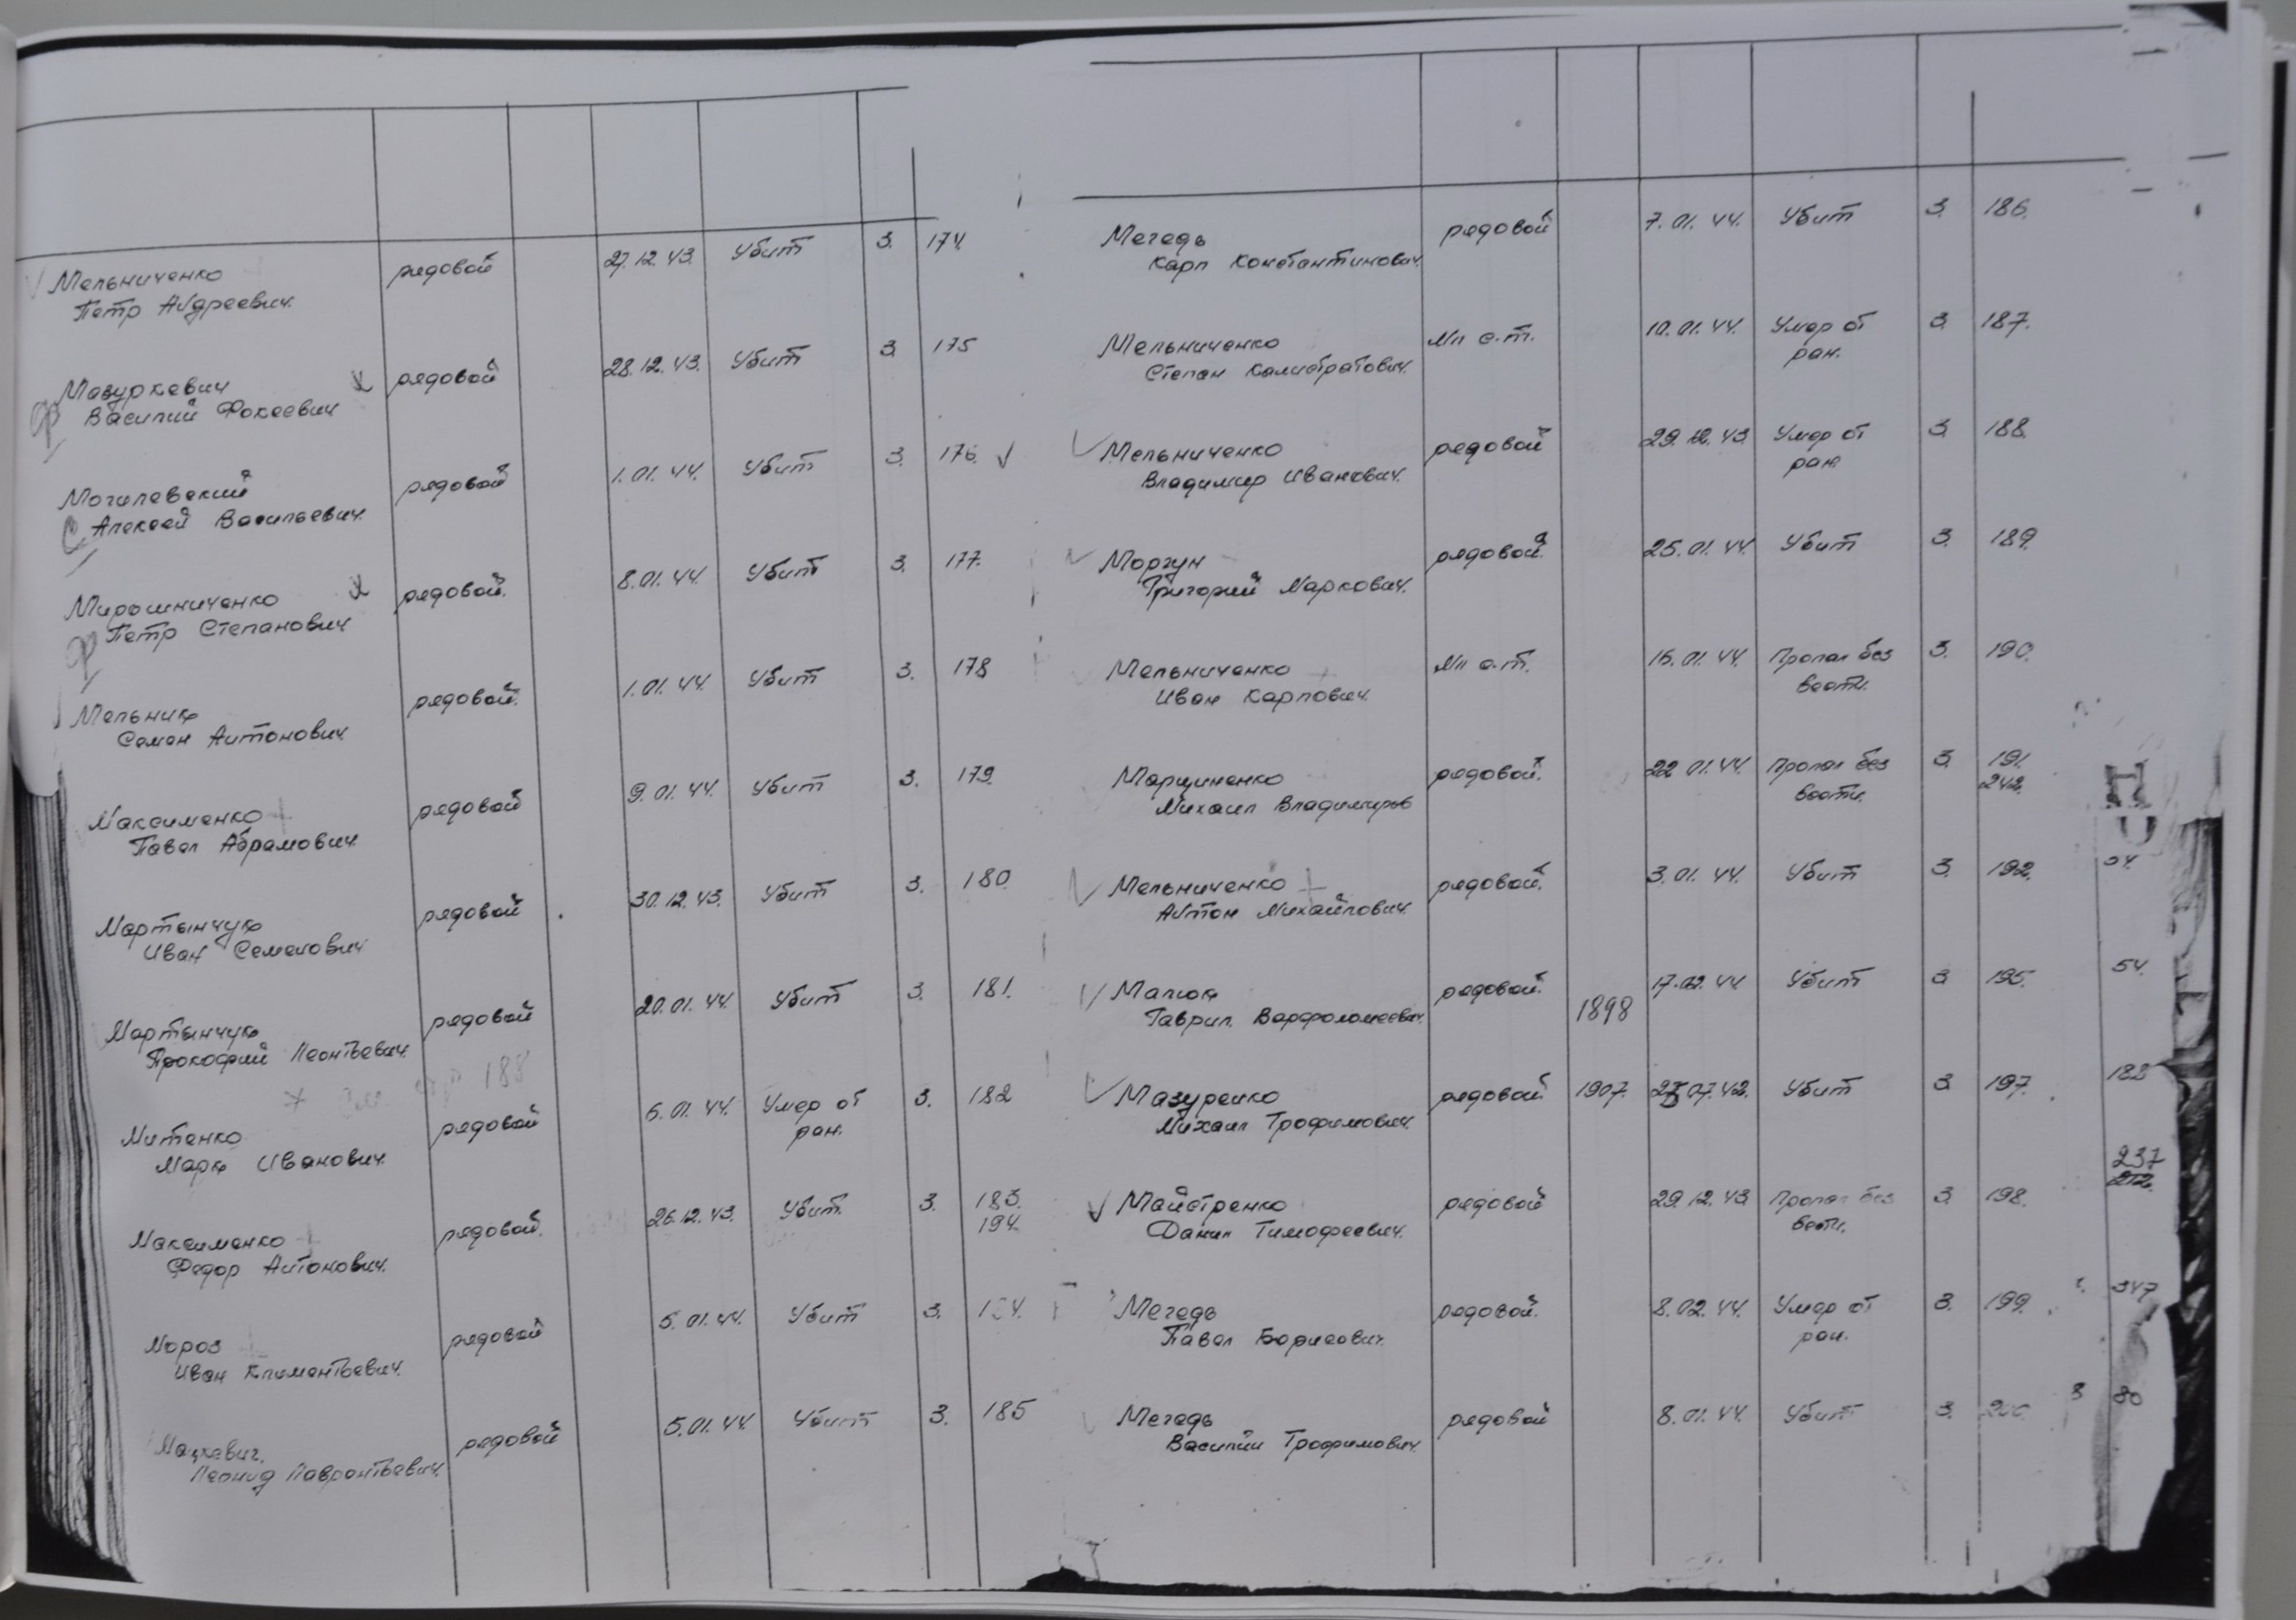 Мельниченко рядовой 27.12.43. Убит 3. 174.
Петр Андреевич.
Мазуркевич х рядовой 28.12.43. Убит 3. 175
Ф Василий Фокеевич
Могилевский рядовой 1.01.44. Убит 3. 176. √
С Алексей Васильевич.
Мирошниченко х рядовой. 8.01.44. Убит 3. 177.
Ф Петр Степанович
Мельник рядовой. 1.01.44. Убит 3. 178
Семен Антонович.
Максименко + рядовой 9.01.44. Убит 3. 179.
Павел Абрамович.
Мартынчук рядовой 30.12.43. Убит 3. 180.
Иван Семенович
Мартынчук рядовой 20.01.44. Убит 3. 181.
Прокофий Леонтьевич.
см. стр 188
Митенко рядовой 6.01.44. Умер от 3. 182
Марк Иванович. ран.
Максименко + рядовой. 26.12.43. Убит. 3. 183.
Федор Антонович. 194.
Мороз + рядовой 5.01.44. Убит 3.
Иван Климентьевич.
Мацкевич. рядовой 5.01.44. Убит 3. 185
Леонид Лаврентьевич.
Мегедь рядовой 7.01.44. Убит 3. 186.
Карп Константинович.
Мельниченко Мл с.т. 10.01.44. Умер от 3. 187.
Степан Калистратович. ран.
√ Мельниченко рядовой 29.12.43 Умер от 3. 188.
Владимир Иванович. ран
√ Моргун рядовой. 25.01.44. Убит 3. 189.
Григорий Маркович.
Мельниченко + Мл с.т. 16.01.44. Пропал без 3. 190.
Иван Карпович. вести.
Марциненко рядовой. 22.01.44. Пропал без 3. 191.
Михаил Владимиров вести. 242.
√ Мельниченко + рядовой. 3.01.44. Убит 3. 192.
Антон Михайлович.
√ Малюк рядовой. 1898 17.02.44 Убит 3 195. 54.
Гаврил. Варфоломеевич.
√ Мазуренко рядовой. 1907. 07.42. Убит 3. 197. 188
Михаил Трофимович.
237
√ Майстренко рядовой 29.12.43 Пропал без 3. 198.
Данил Тимофеевич. вести.
Мегедь рядовой. 8.02.44. Умер от 3. 199. 347
Павел Борисович. ран.
Мегедь рядовой 8.01.44. Убит 3. 200. 8 80
Василий Трофимович.